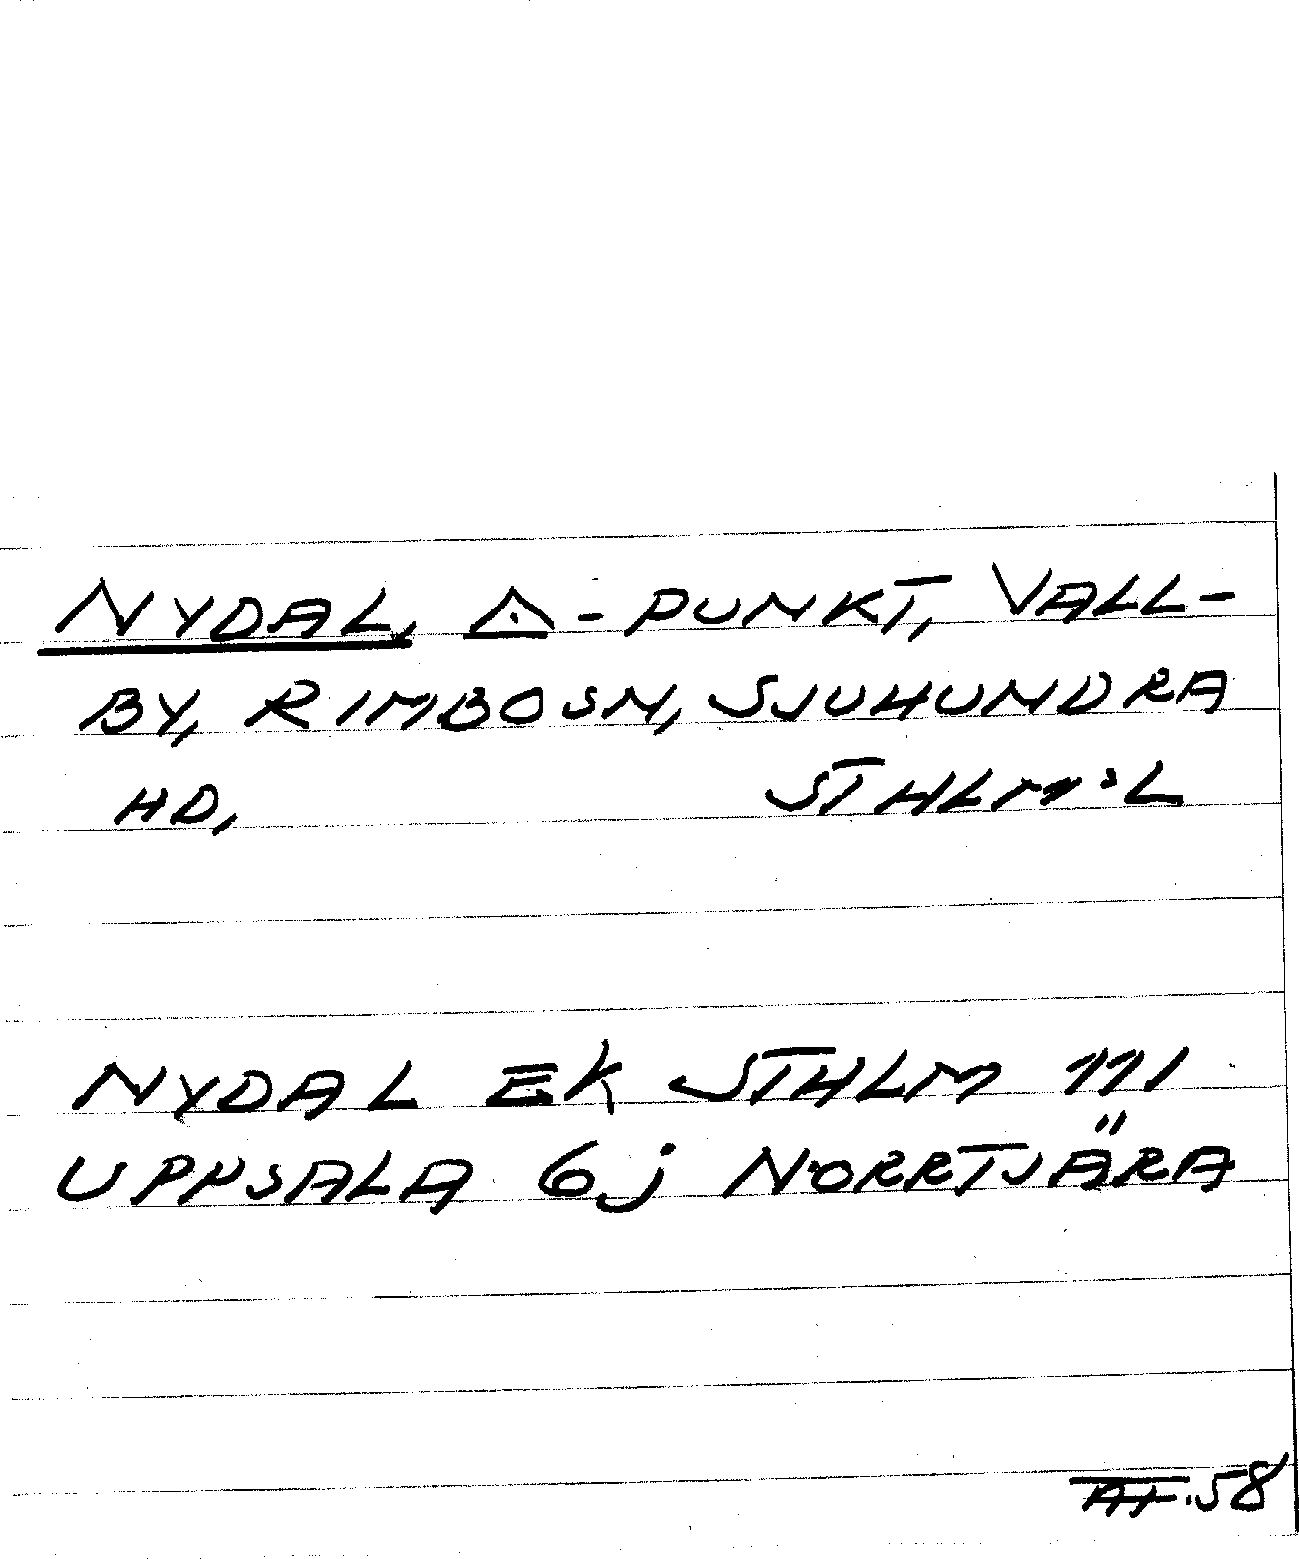 NYDAL, △-PUNKT, VALL-
BY, RIMBOSN, SJUHUNDRA
HD, STHLM:L
NYDAL EK STHLM 111
UPPSALA 6j NORRTJÄRA
.58